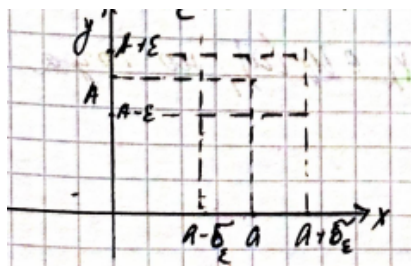 y
A+ε
A
A-ε
a-δε a a+δε x